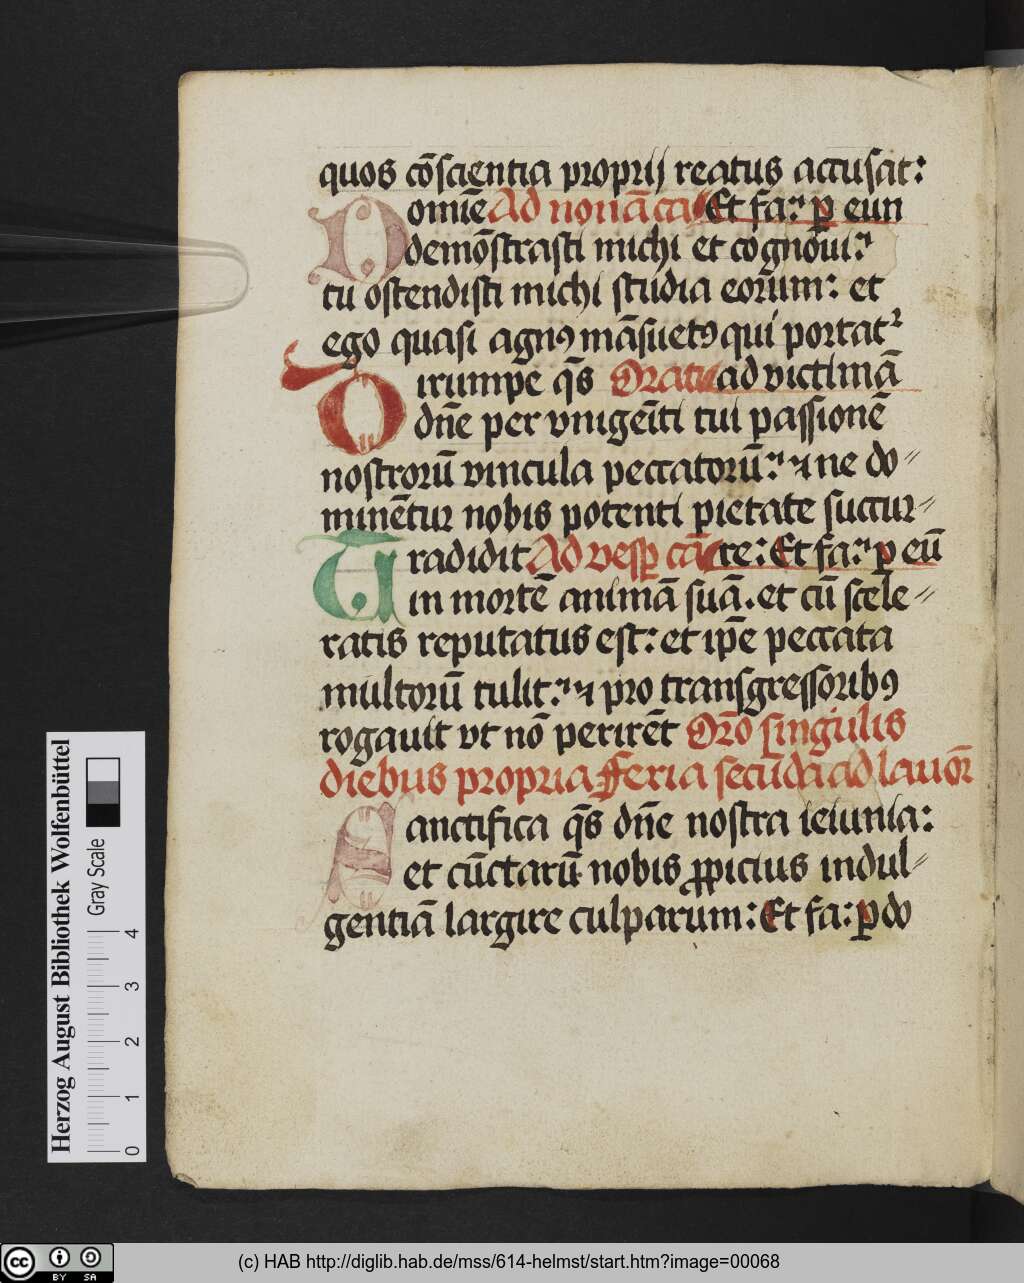 quos cōscientia proprij reatus accusat:
Domīe Ad nonā ca Et fa: ꝑ eun
demōstrasti michi et cognoui:
tu ostendisti michi studia eorum: et
ego quasi agnꝯ māsuetꝯ qui portatᷣ
Dirumpe q̄s Oratio ad victimā
dn̄e per vnigeīti tui passionē
nostrorū vincula peccatorū: ⁊ ne do⸗
minētur nobis potenti pietate succur⸗
Tradidit Ad vesꝑ cā re: Et fa: ꝑ eū
in mortē animā suā. et cū scele⸗
ratis reputatus est: et ip̄e peccata
multorū tulit: ⁊ pro transgressoribꝯ
rogauit vt nō perirēt Orō singulis
diebus propria Feria secūda ad lauor̄
Sanctifica q̄s dn̄e nostra ieiunia:
et cūctarū nobis ꝓpicius indul⸗
gentiā largire culparum: Et fa: ꝑ do
Herzog August Bibliothek Wolfenbüttel
Gray Scale
0 1 2 3 4
cc BY SA
(c) HAB http://diglib.hab.de/mss/614-helmst/start.htm?image=00068